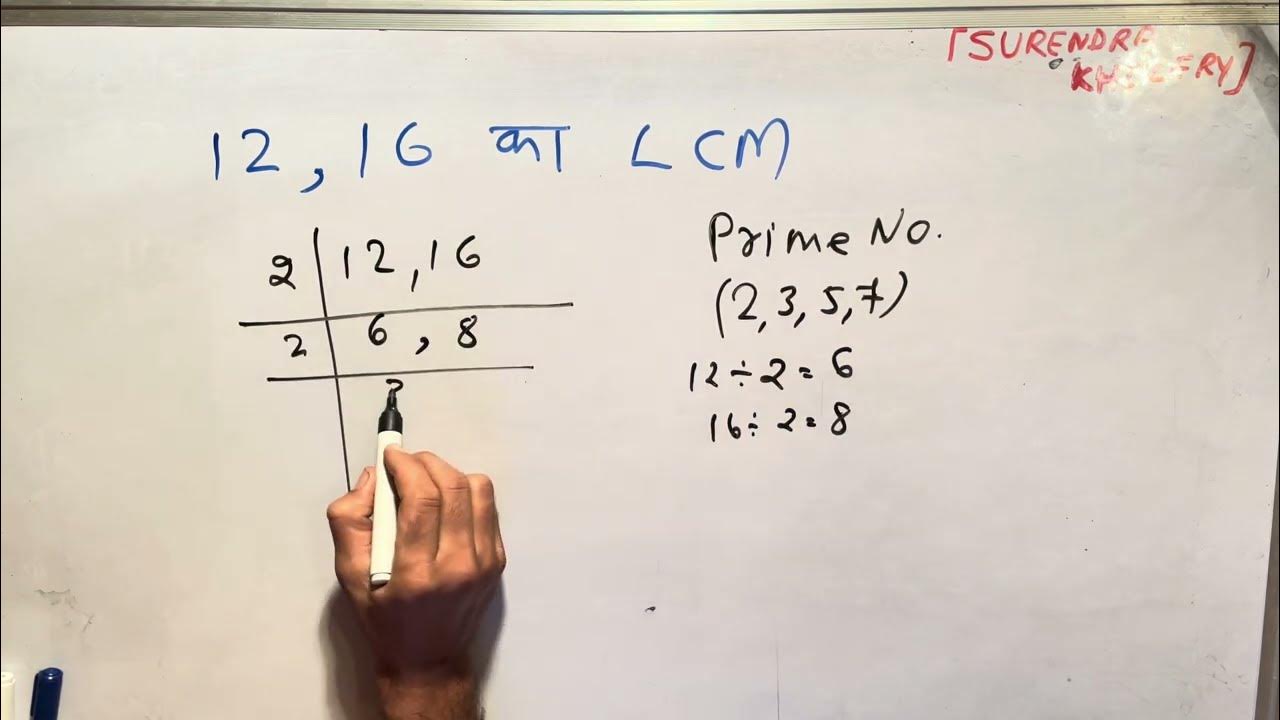 [SURENDRA
12, 16 का LCM
2 12, 16
2 6, 8
Prime No.
(2, 3, 5, 7)
12 ÷ 2 = 6
16 ÷ 2 = 8